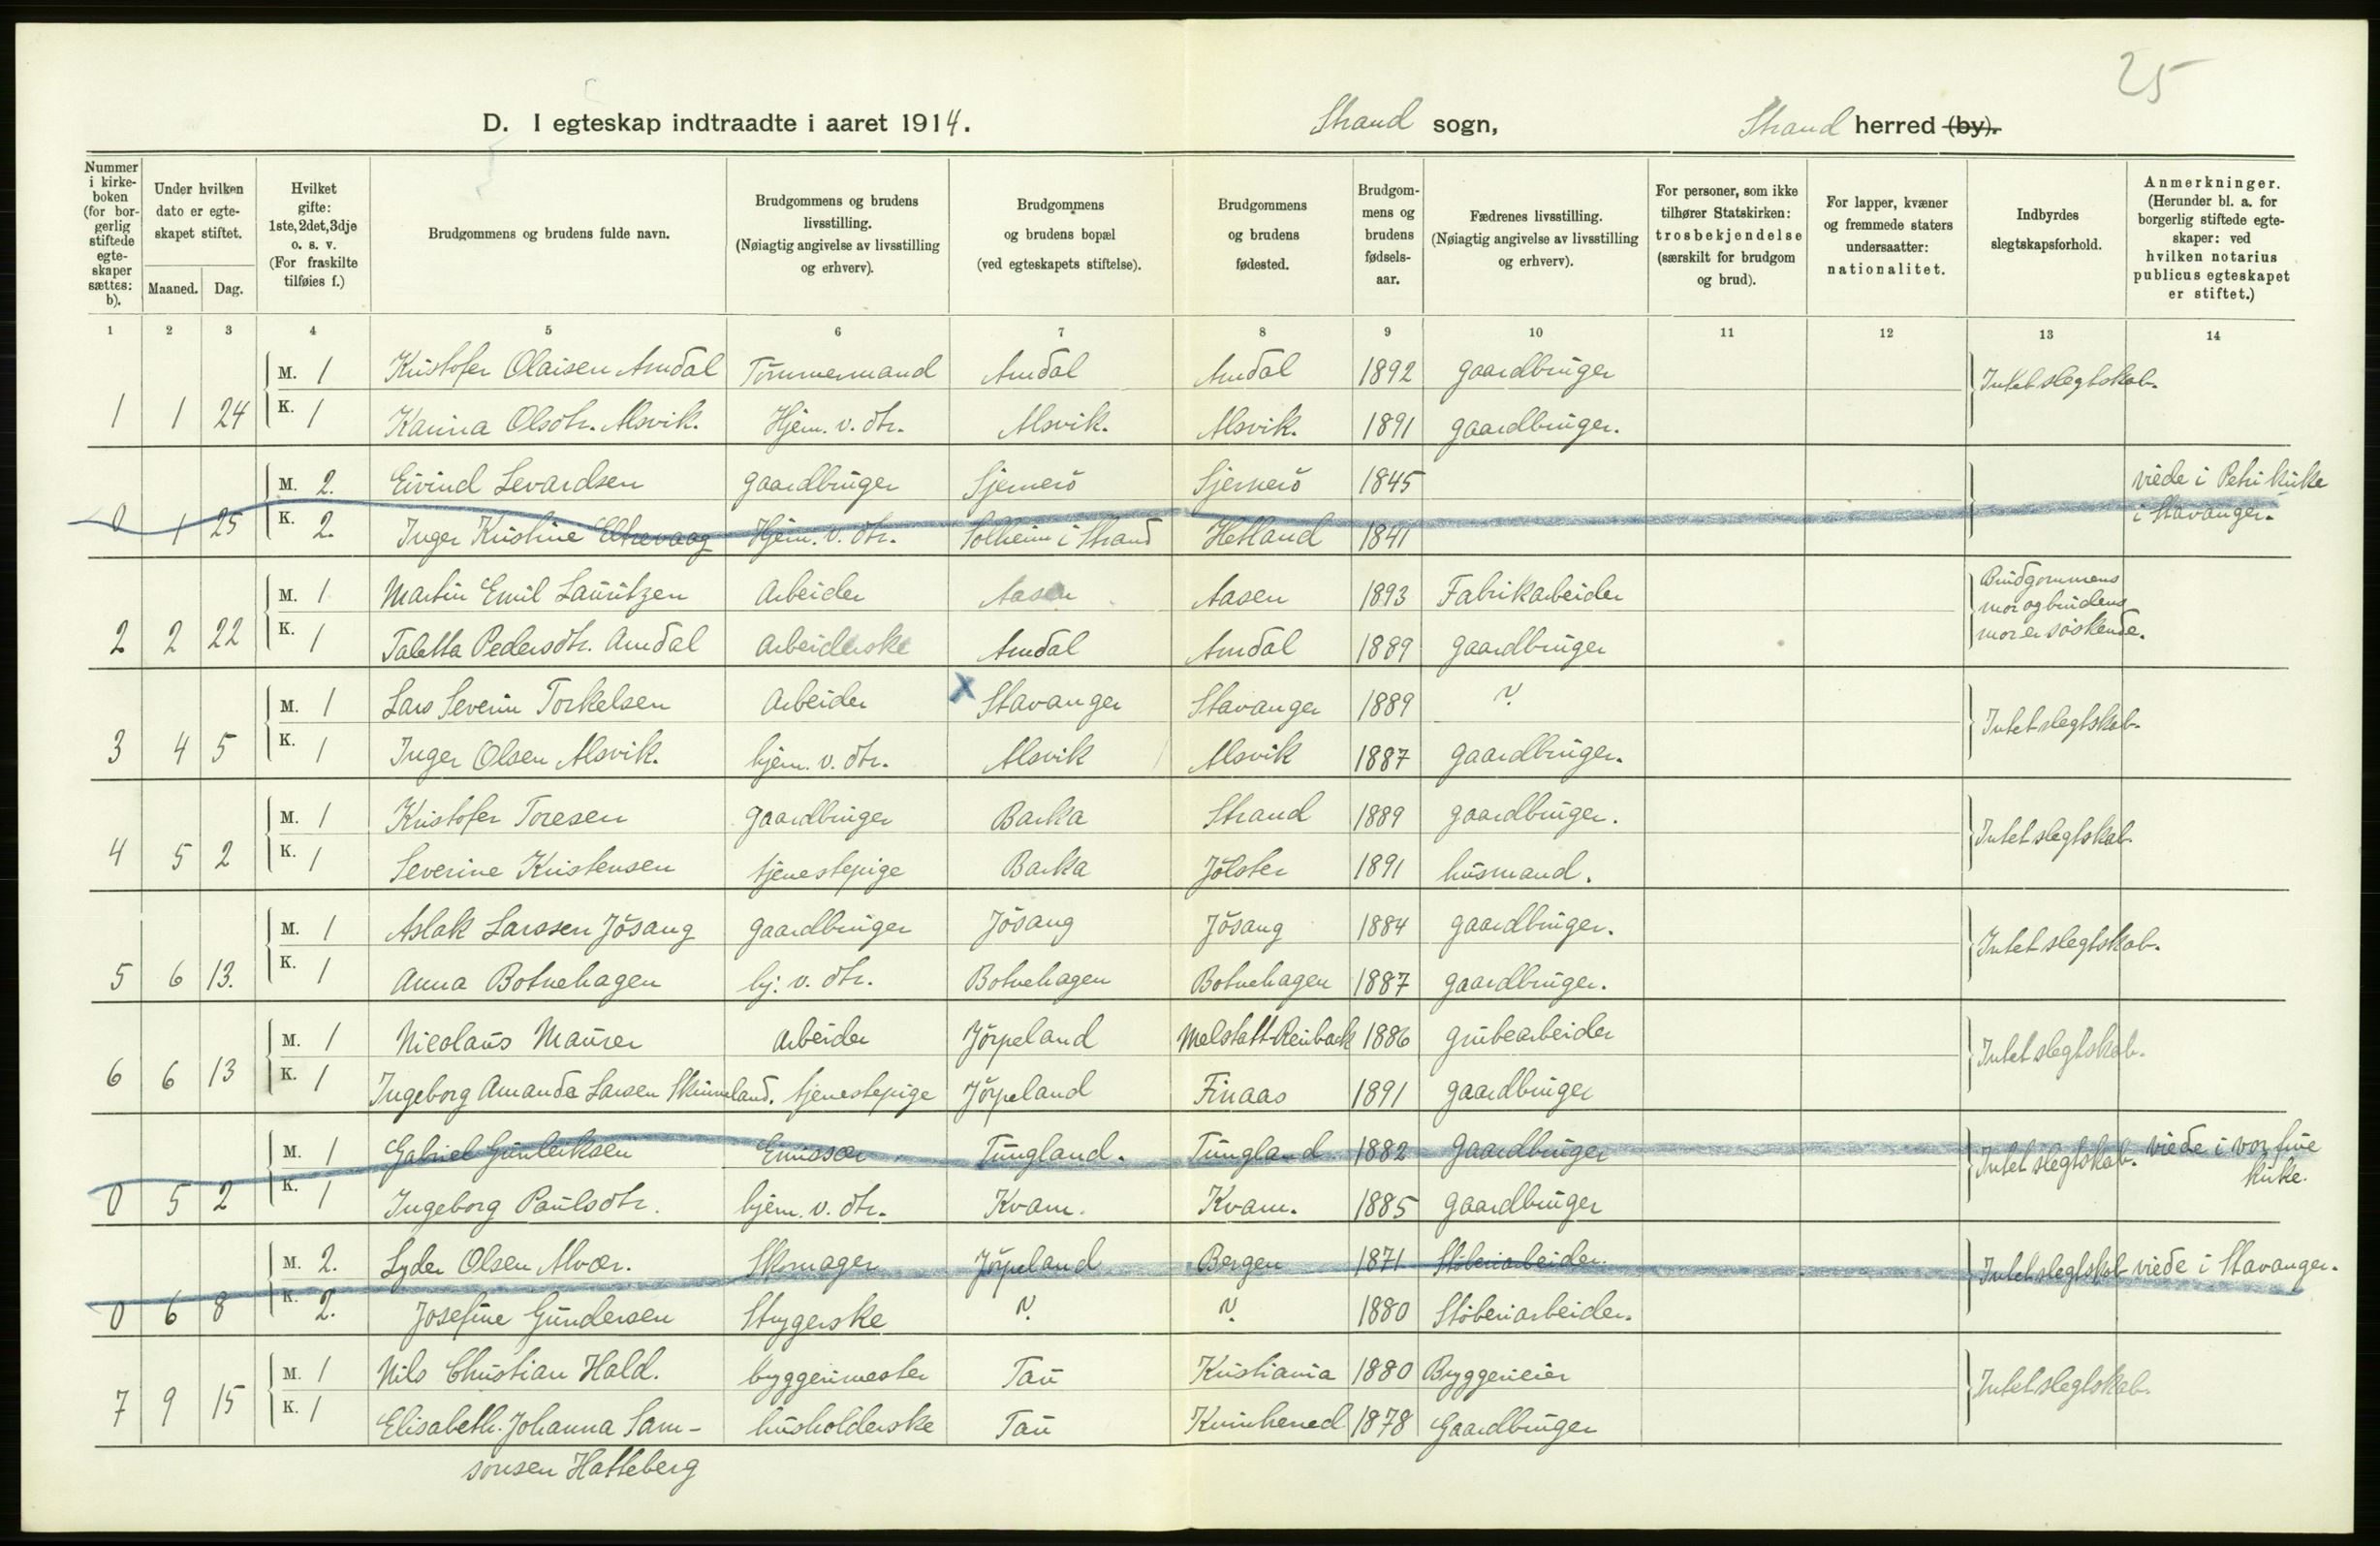 25
D. I egteskap indtraadte i aaret 1914. Strand sogn, Strand herred (by).
Nummer i kirke-boken (for bor-gerlig stiftede egte-skaper sættes: b). Under hvilken dato er egte-skapet stiftet. Maaned. Dag. Hvilket gifte: 1ste, 2det, 3dje o. s. v. (For fraskilte tilføies f.) Brudgommens og brudens fulde navn. Brudgommens og brudens livsstilling. (Nøiagtig angivelse av livsstilling og erhverv). Brudgommens og brudens bopæl (ved egteskapets stiftelse). Brudgommens og brudens fødested. Brudgom-mens og brudens fødsels-aar. Fædrenes livsstilling. (Nøiagtig angivelse av livsstilling og erhverv). For personer, som ikke tilhører Statskirken: trosbekjendelse (særskilt for brudgom og brud). For lapper, kvæner og fremmede staters undersaatter: nationalitet. Indbyrdes slegtskapsforhold. Anmerkninger. (Herunder bl. a. for borgerlig stiftede egte-skaper: ved hvilken notarius publicus egteskapet er stiftet.)
1 2 3 4 5 6 7 8 9 10 11 12 13 14
M. 1 Kristofer Olaisen Amdal Tömmermand Amdal Amdal 1892 gaardbruger Intet slegtskab.
1 1 24 K. 1 Karina Olsdtr. Alsvik. Hjem. v. dtr. Alsvik. Alsvik. 1891 gaardbruger.
M. 2. Eivind Sevardsen gaardbruger Sjernerö Sjernerö 1845 viede i Petri kirke
0 1 25 K. 2. Inger Kristine Eltrevaag Hjem. v. dtr. Solheim i Strand Hetland 1841 i Stavanger.
M. 1 Martin Emil Lauritzen Arbeider Aasen Aasen 1893 Fabrikarbeider Brudgommens mor og brudens
2 2 22 K. 1 Taletta Pedersdtr. Amdal Arbeiderske Amdal Amdal 1889 gaardbruger mor er söskende.
M. 1 Lars Severin Torkelsen Arbeider X Stavanger Stavanger 1889 ? Intet slegtskab.
3 4 5 K. 1 Inger Olsen Alsvik. hjem. v. dtr. Alsvik Alsvik 1887 gaardbruger.
M. 1 Kristofer Toresen gaardbruger Barka Strand 1889 gaardbruger. Intet slegtskab.
4 5 2 K. 1 Severine Kristensen tjenestepige Barka Jölster 1891 husmand.
M. 1 Aslak Larssen Jösang gaardbruger Jösang Jösang 1884 gaardbruger. Intet slegtskab.
5 6 13. K. 1 Anna Botnehagen hj. v. dtr. Botnehagen Botnehagen 1887 gaardbruger.
M. 1 Nicolaus Maurer Arbeider Jörpeland Melstatt-Reinbach 1886 grubearbeider Intet slegtskab.
6 6 13 K. 1 Ingeborg Amanda Larsen Skimmeland. tjenestepige Jörpeland Finaas 1891 gaardbruger
M. 1 Gabriel Gunleiksen Emissær Tungland. Tungland 1882 Gaardbruger Intet slegtskab. viede i vor frue
0 5 2 K. 1 Ingeborg Paulsdtr. hjem. v. dtr. Kvam. Kvam. 1885 gaardbruger kirke.
M. 2. Lyder Olsen Alvær. Skomager Jörpeland Bergen 1871 Stöberiarbeider. Intet slegtskab viede i Stavanger.
0 6 8 K. 2. Josefine Gundersen Strygerske ? ? 1880 Stöberiarbeider.
M. 1 Nils Christian Hald. bryggerimester Tau Kristiania 1880 Bryggerieier Intet slegtskab.
7 9 15 K. 1 Elisabeth Johanna Sam- husholderske Tau Kvinherred 1878 Gaardbruger
sonsen Hatteberg